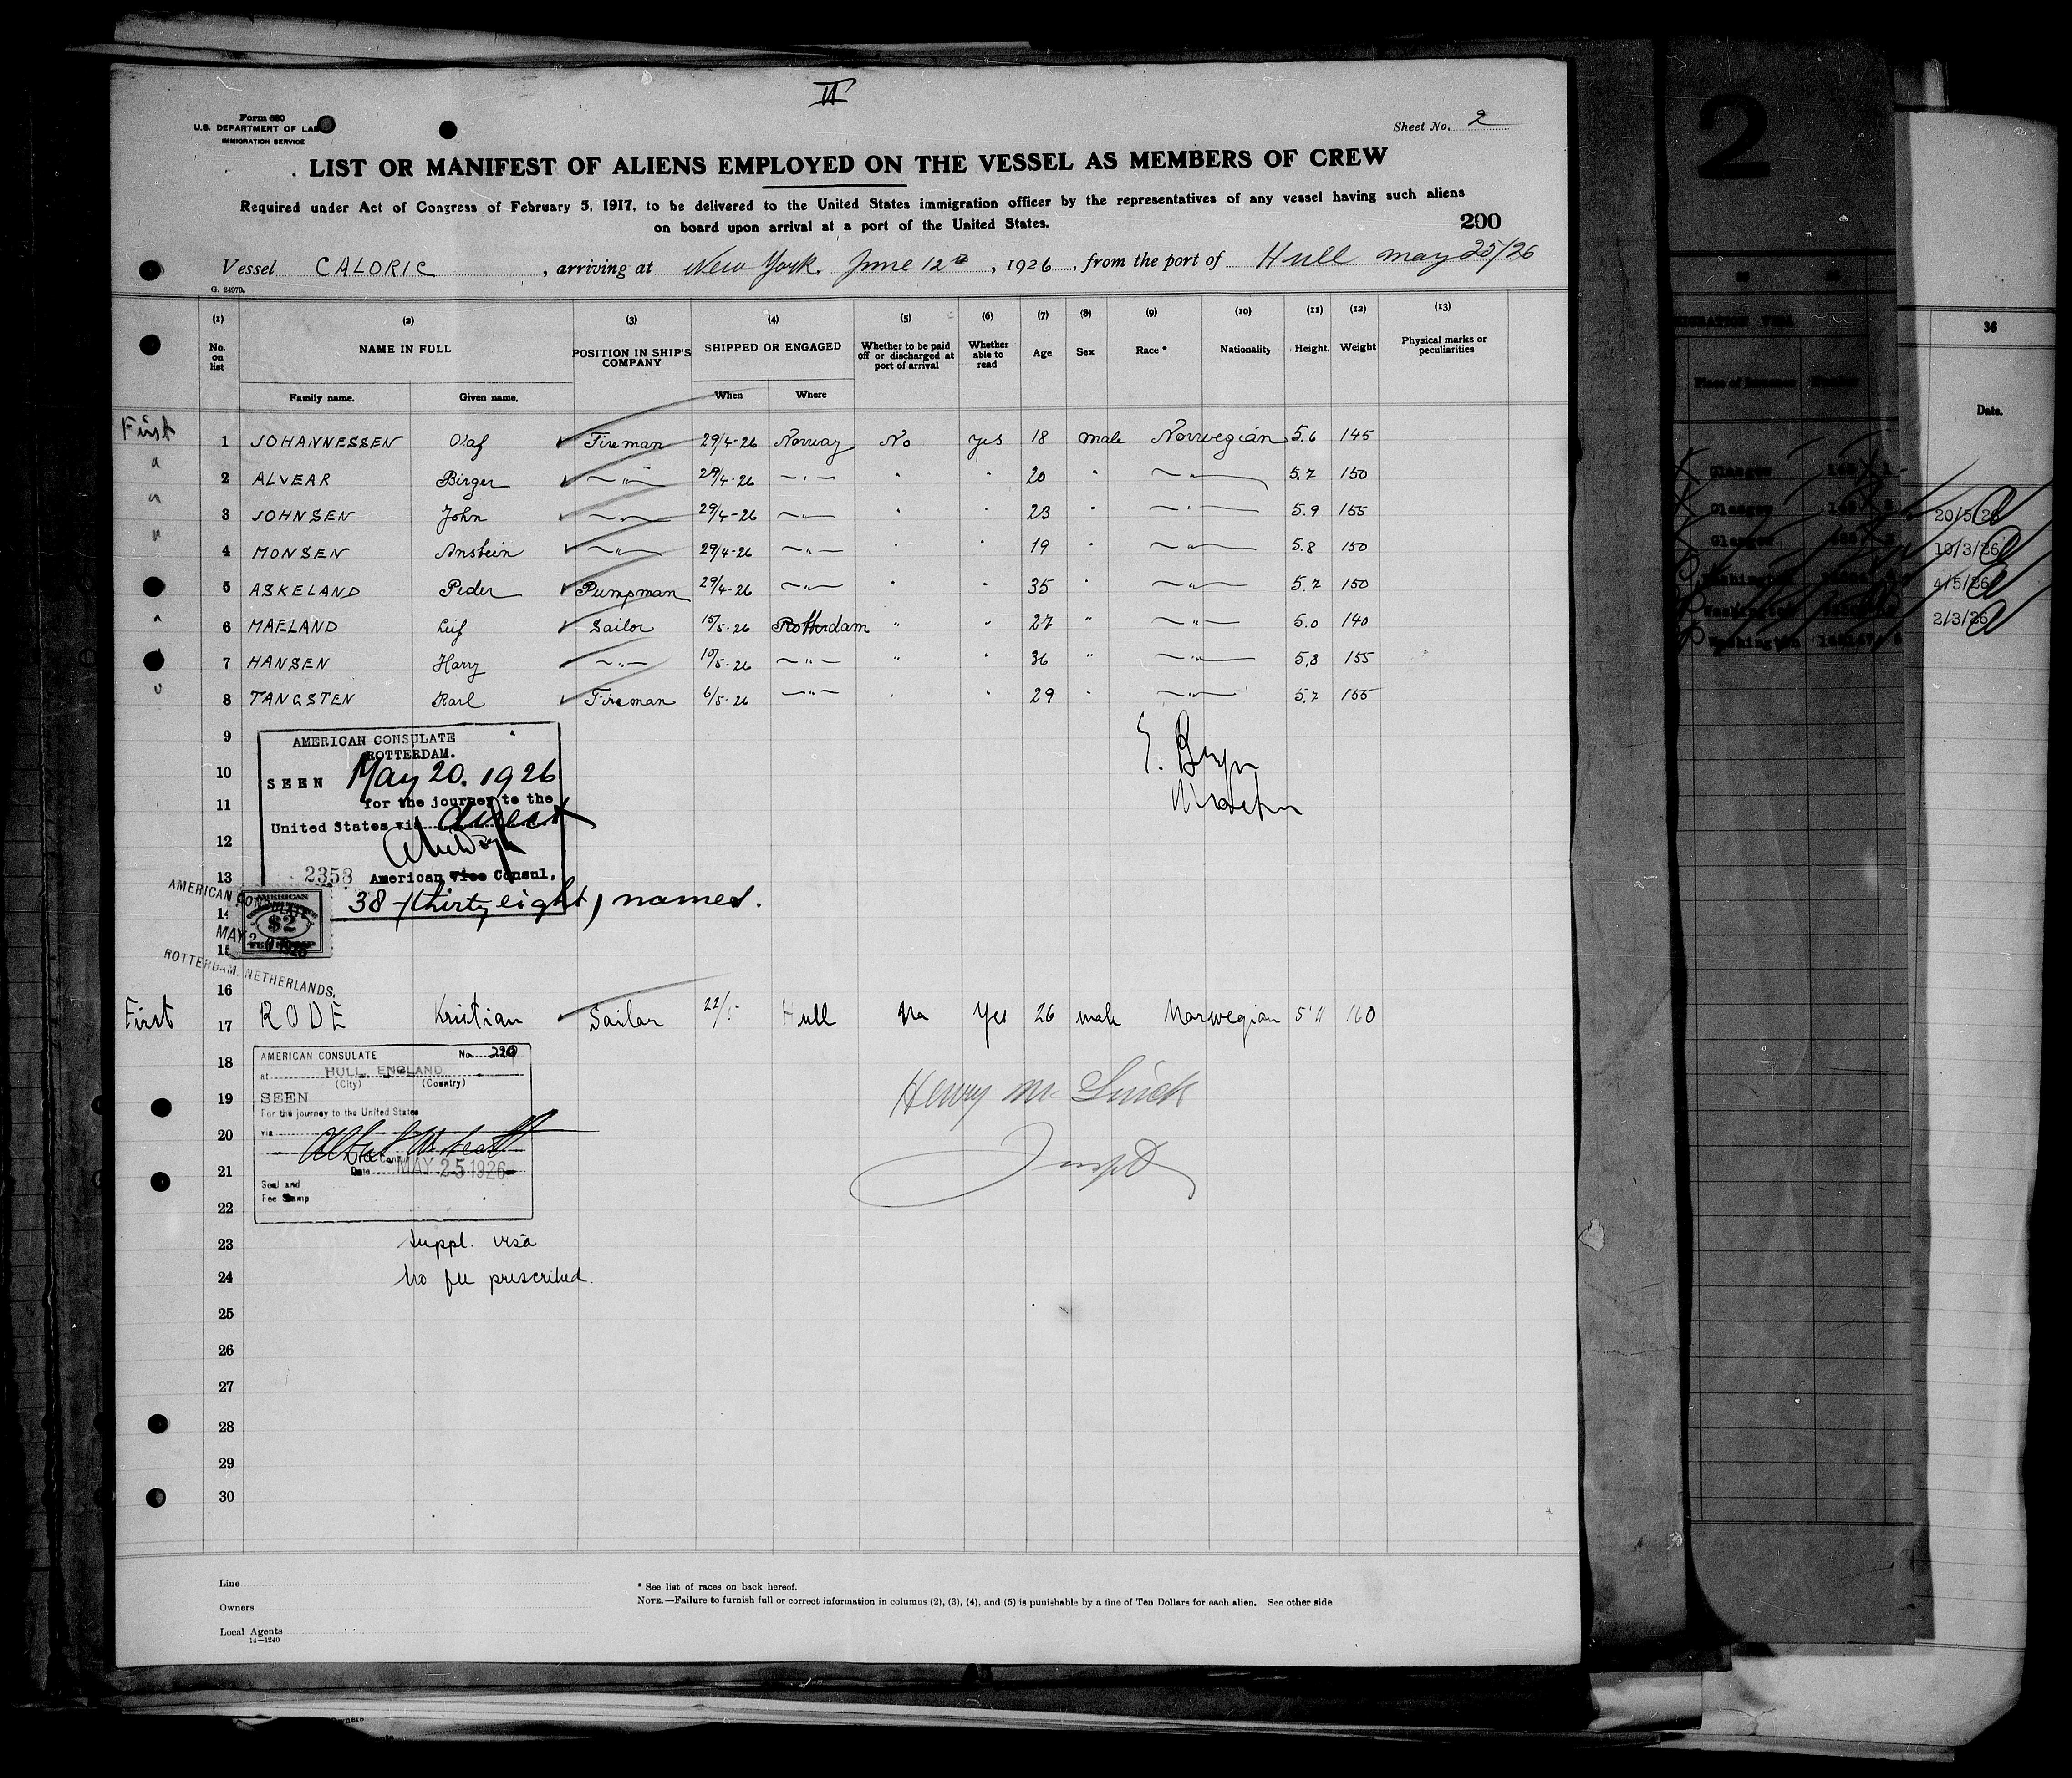 II
Form 680
U.S. DEPARTMENT OF LAB
IMMIGRATION SERVICE
Sheet No. 2
LIST OR MANIFEST OF ALIENS EMPLOYED ON THE VESSEL AS MEMBERS OF CREW
Required under Act of Congress of February 5, 1917, to be delivered to the United States immigration officer by the representatives of any vessel having such aliens
on board upon arrival at a port of the United States.
200
Vessel CALORIC, arriving at New York. June 12th, 1926, from the port of Hull may 25/26
G. 24979.
(1) (2) (3) (4) (5) (6) (7) (8) (9) (10) (11) (12) (13)
No. on list NAME IN FULL POSITION IN SHIP'S COMPANY SHIPPED OR ENGAGED Whether to be paid off or discharged at port of arrival Whether able to read Age Sex Race * Nationality Height. Weight Physical marks or peculiarities
Family name. Given name. When Where
First 1 JOHANNESSEN Olaf Fireman 29/4-26 Norway No Yes 18 male Norwegian 5.6 145
2 ALVEAR Birger —"— 29/4-26 —"— " " 20 " —"— 5.7 150
3 JOHNSEN John —"— 29/4-26 —"— " " 23 " —"— 5.9 155
4 MONSEN Anstein —"— 29/4-26 —"— " " 19 " —"— 5.8 150
5 ASKELAND Peder Pumpman 29/4-26 —"— " " 35 " —"— 5.7 150
6 MAELAND Leif Sailor 15/5-26 Rotterdam " " 27 " —"— 6.0 140
7 HANSEN Harry —"— 15/5-26 —"— " " 36 " —"— 5,8 155
8 TANGSTEN Karl Fireman 6/5-26 —"— " " 29 " —"— 5.7 155
9
AMERICAN CONSULATE
ROTTERDAM.
10
SEEN May 20. 1926
for the journey to the
11
United States via direct
12
E. Bryn
Master
13
2358 American vice Consul.
38 - (thirty eight) names.
14
AMERICAN CONSULATE
AMERICAN
$2
FEE STAMP
MAY 20 1926
15
ROTTERDAM. NETHERLANDS.
16
First 17 RODE Kristian Sailor 22/5- Hull No Yes 26 male Norwegian 5'11 160
18
AMERICAN CONSULATE No. 220
at HULL, ENGLAND
(City) (Country)
19
SEEN
For the journey to the United States
via
20
21
Date MAY 25 1926
Seal and
Fee Stamp
22
Henry
Insp
23 suppl. visa
24 No fee prescribed.
25
26
27
28
29
30
Line
Owners
Local Agents
14—1240
* See list of races on back hereof.
NOTE.—Failure to furnish full or correct information in columns (2), (3), (4), and (5) is punishable by a fine of Ten Dollars for each alien. See other side
2
Place of Issuance
Glasgow
Glasgow
Glasgow
Washington
Washington
Washington
36
Date.
20/5/26
10/3/26
4/5/26
2/3/26